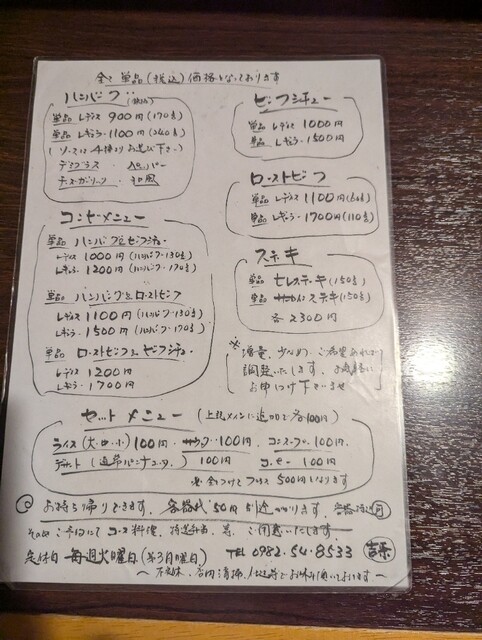 全て単品(税込)価格となっております
ハンバーグ(税込)
単品 レディス 900円(170g)
単品 レギュラー 1100円(240g)
(ソースは4種よりお選び下さい)
デミグラス・ペッパー
チーズガーリック・和風
コンビメニュー
単品 ハンバーグとビーフシチュー
レディス 1000円(ハンバーグ・130g)
レギュラー 1200円(ハンバーグ・170g)
単品 ハンバーグとローストビーフ
レディス 1100円(ハンバーグ・130g)
レギュラー 1500円(ハンバーグ・170g)
単品 ローストビーフとビーフシチュー
レディス 1200円
レギュラー 1700円
ビーフシチュー
単品 レディス 1000円
単品 レギュラー 1500円
ローストビーフ
単品 レディス 1100円(60g)
単品 レギュラー 1700円(110g)
ステーキ
単品 ヒレステーキ(150g)
単品 サーロインステーキ(150g)
各2300円
※増量、少なめ、ご希望あれば
調整いたします。お気軽に
お申しつけ下さいませ
セットメニュー(上記メインに追加で各100円)
ライス(大・中・小)100円・サラダ・100円、コーンスープ・100円、
デザート(通常パンナコッタ) 100円 コーヒー 100円
※全つけでプラス500円になります
◎お持ち帰りできます、容器代50円別途かかります、
その他ご予約にてコース料理、特選弁当、等、ご用意いたします、
定休日 毎週火曜日(第3月曜日) TEL 0982-54-8533
〜不定休、店内清掃、仕込等でお休み頂いております〜